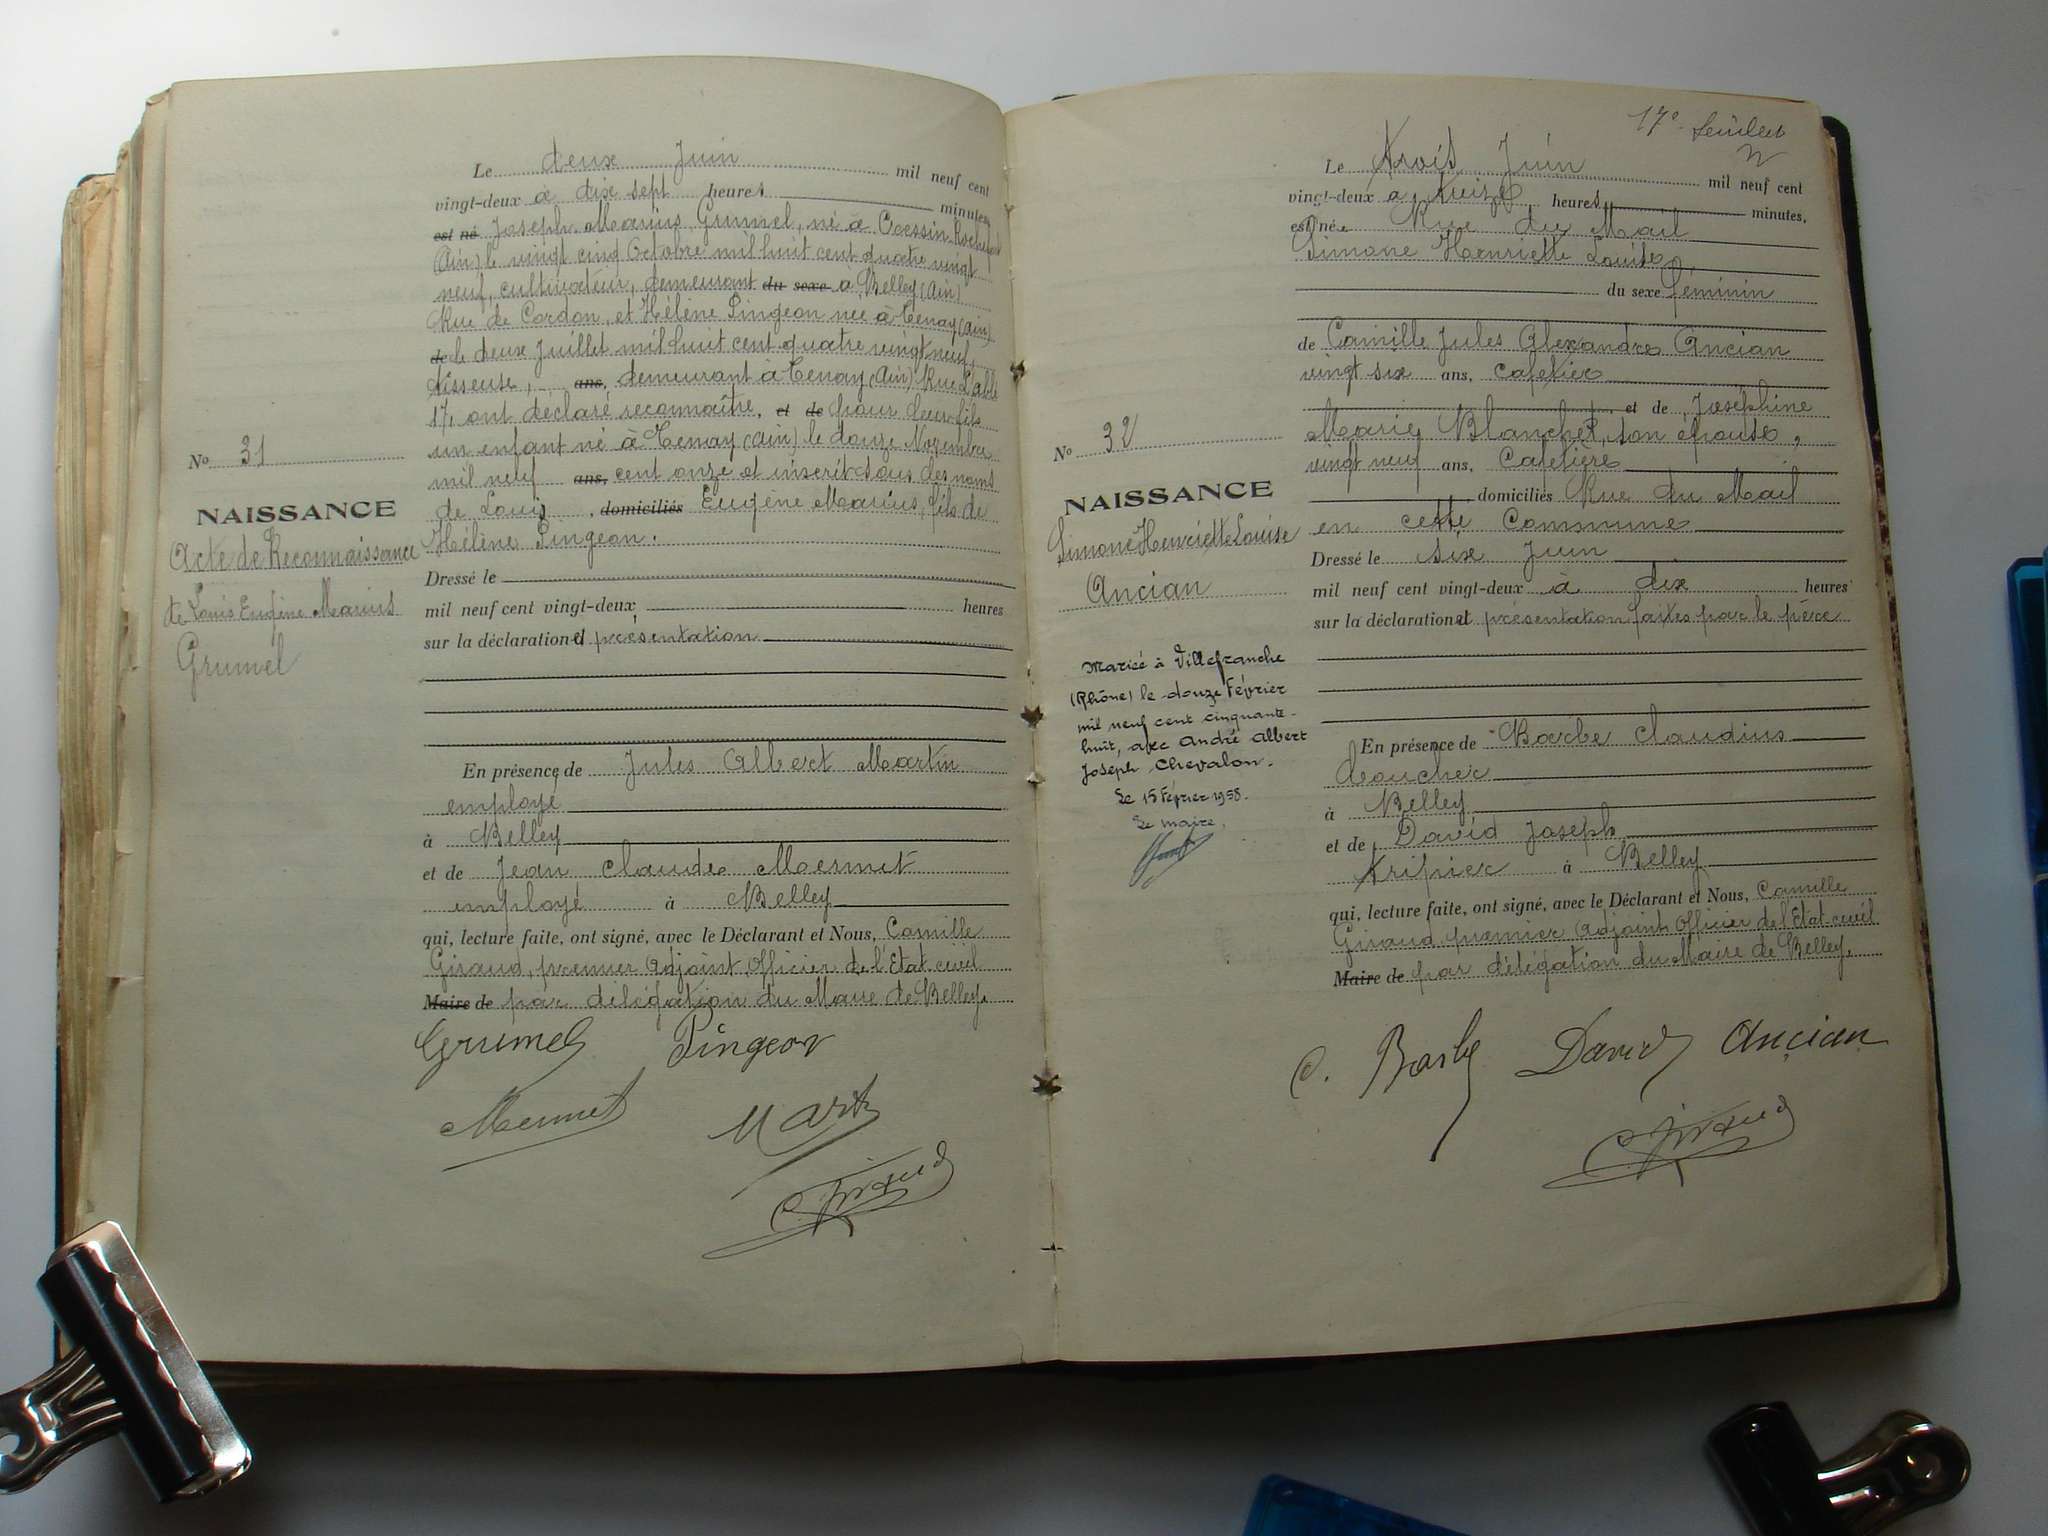 Le deux Juin mil neuf cent
vingt-deux à dix sept heures minutes
est né Joseph Marius Grumel, né à
(Ain) le vingt cinq Octobre mil huit cent quatre vingt
neuf, cultivateur, demeurant du sexe à Belley (Ain)
Rue de Cordon, et Hélène Pingeon née à Tenay (Ain)
de le deux Juillet mil huit cent quatre vingt neuf,
tisseuse, ans, demeurant à Tenay (Ain) Rue
17, ont déclaré reconnaître, et de pour leur fils
un enfant né à Tenay (Ain) le douze Novembre
mil neuf ans, cent onze et inscrit sous les noms
de Louis , domiciliés Eugène Marius, fils de
Hélène Pingeon.
No 31
NAISSANCE
Acte de Reconnaissance
de Louis Eugène Marius
Grumel
Dressé le
mil neuf cent vingt-deux, heures
sur la déclaration et présentation
En présence de Jules Albert Martin
employé
à Belley
et de Jean Claude Mermet
employé à Belley
qui, lecture faite, ont signé, avec le Déclarant et Nous, Camille
Giraud, premier Adjoint, Officier de l'Etat civil
Maire de par délégation du Maire de Belley.
Grumel Pingeon
Mermet Martin
C. Giraud
17e feuillet
Le trois Juin mil neuf cent
vingt-deux à treize heures minutes,
est née Rue du Mail
Simone Henriette Louise
du sexe féminin
de Camille Jules Alexandre Ancian
vingt six ans, cafetier
et de Joséphine
Marie Blanchet, son épouse,
vingt neuf ans, Cafetière
domiciliés Rue du Mail
en cette Commune
No 32
NAISSANCE
Simone Henriette Louise
Ancian
Mariée à Villefranche
(Rhône) le douze Février
mil neuf cent cinquante-
huit, avec André Albert
Joseph Chevalon.
Le 15 Février 1958.
Le maire,
Dressé le six Juin
mil neuf cent vingt-deux à dix heures
sur la déclaration et présentation faites par le père
En présence de Barbe Claudius
boucher
à Belley
et de David Joseph
tripier à Belley
qui, lecture faite, ont signé, avec le Déclarant et Nous, Camille
Giraud premier Adjoint, Officier de l'Etat-civil
Maire de par délégation du Maire de Belley.
C. Barbe David Ancian
C. Giraud